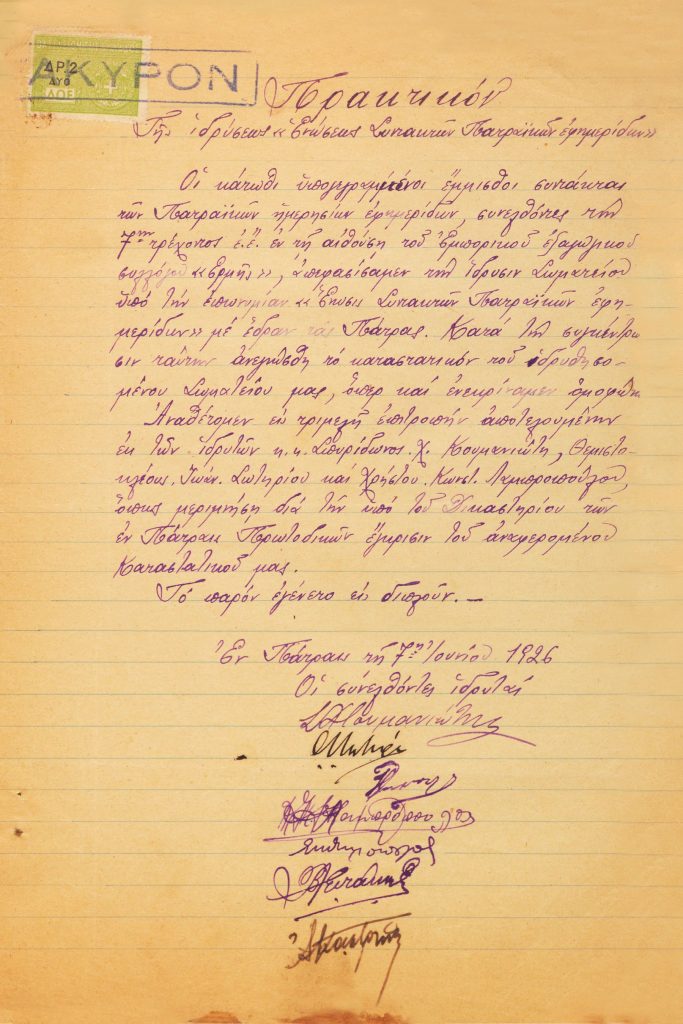 ΔΡ. 2
ΔΥΟ
ΑΚΥΡΟΝ
Πρακτικόν
Τῆς ἱδρύσεως «Ἑνώσεως Συντακτῶν Πατραϊκῶν ἐφημερίδων»
Οἱ κάτωθι ὑπογεγραμμένοι ἔμμισθοι συντάκται
τῶν Πατραϊκῶν ἡμερησίων ἐφημερίδων, συνελθόντες τὴν
7ην τρέχοντος ἐ.ἔ. ἐν τῇ αἰθούσῃ τοῦ Ἐμπορικοῦ ἐξαγωγικοῦ
συλλόγου «Ἑρμῆς», ἀπεφασίσαμεν τὴν ἵδρυσιν Σωματείου
ὑπὸ τὴν ἐπωνυμίαν «Ἕνωσις Συντακτῶν Πατραϊκῶν ἐφη-
μερίδων» μὲ ἕδραν τὰς Πάτρας. Κατὰ τὴν συγκέντρω
σιν ταύτην ἀνεγνώσθη τὸ καταστατικὸν τοῦ ἱδρυθησο-
μένου Σωματείου μας, ὅπερ καὶ ἐνεκρίναμεν ὁμοφώνως
Ἀναθέτομεν εἰς τριμελῆ ἐπιτροπὴν ἀποτελουμένην
ἐκ τῶν ἱδρυτῶν κ.κ. Σπυρίδωνος. Χ. Κουμανιώτη, Θεμιστο-
κλέους. Ἰωάν. Σωτηρίου καὶ Χρήστου. Κωνστ. Λαμπροπούλου,
ὅπως μεριμνήσῃ διὰ τὴν ὑπὸ τοῦ Δικαστηρίου τῶν
ἐν Πάτραις Πρωτοδικῶν ἔγκρισιν τοῦ ἀναφερομένου
Καταστατικοῦ μας.
Τὸ παρὸν ἐγένετο εἰς διπλοῦν. —
Ἐν Πάτραις τῇ 7ῃ Ἰουνίου 1926
Οἱ συνελθόντες ἱδρυταί
ΣΧΚουμανιώτης